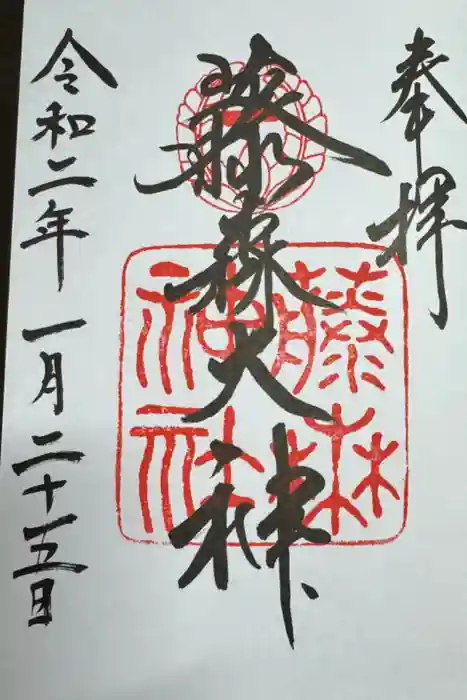 奉拝
藤森大神
藤森神社
令和二年一月二十五日